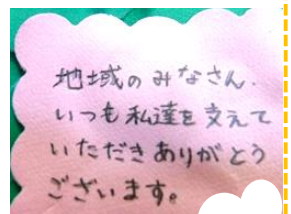 地域のみなさん、
いつも私達を支えて
いただきありがとう
ございます。